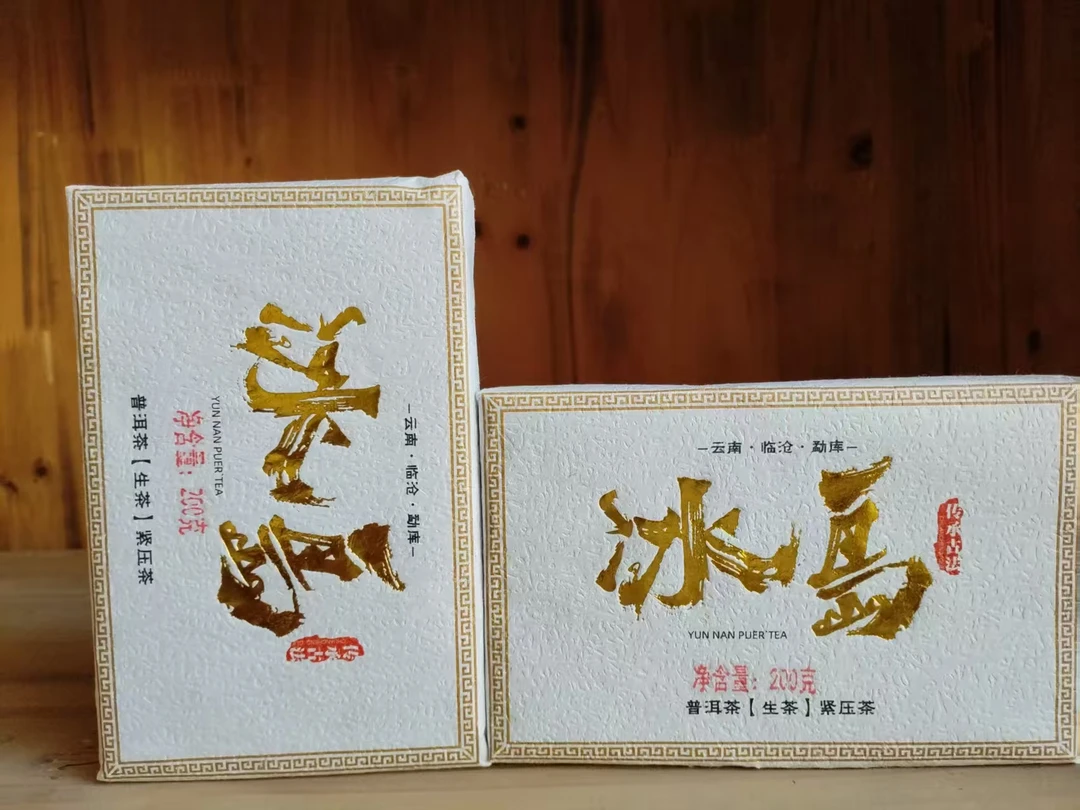 —云南·临沧·勐库—
冰島
传承古法
YUN NAN PUER TEA
净含量：200克
普洱茶【生茶】紧压茶
—云南·临沧·勐库—
冰島
传承古法
YUN NAN PUER TEA
净含量：200克
普洱茶【生茶】紧压茶